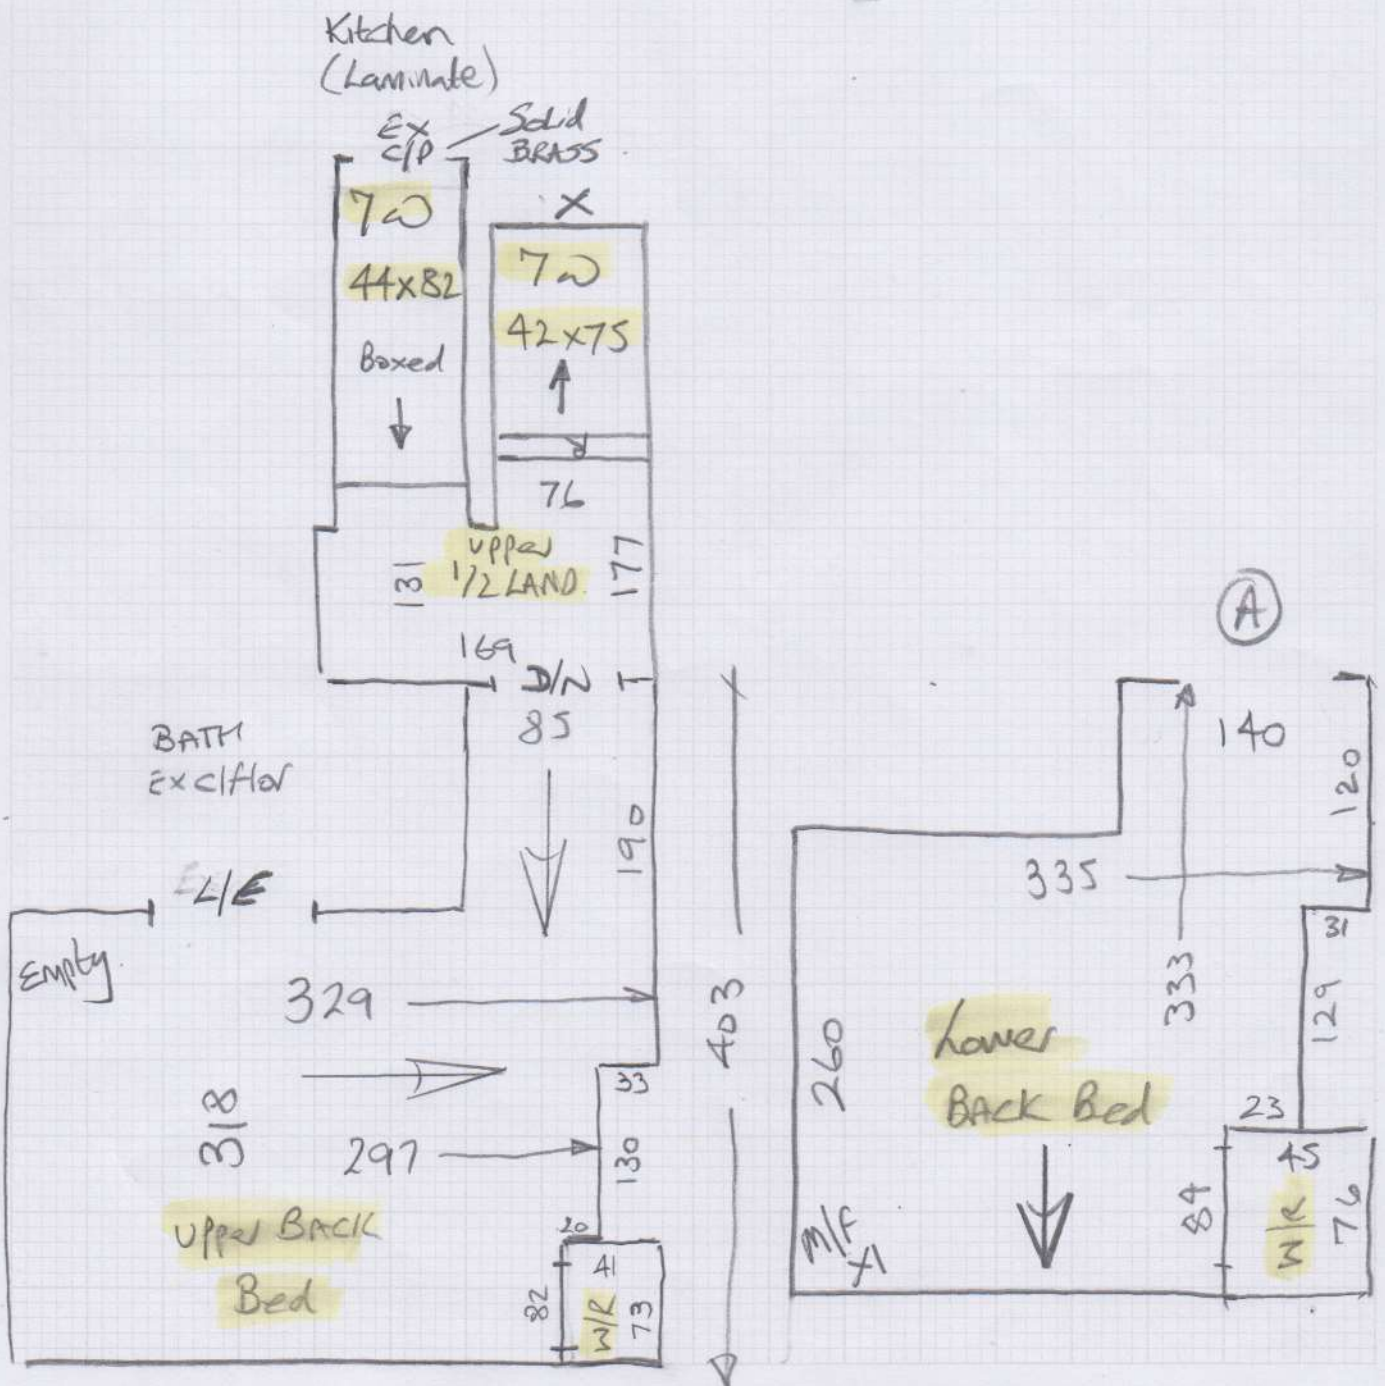 Kitchen
(Laminate)
EX
C/P
Solid
BRASS
X
7W
44x82
Boxed
7W
42x75
76
upper
1/2 LAND
131
177
169
D/N
85
190
BATH
Ex c/flor
L/E
Empty
329
33
318
297
130
20
41
82
W/R
73
Upper BACK
Bed
403
A
140
120
335
31
333
129
260
Lower
BACK Bed
23
45
84
W/R
76
M/F
X1